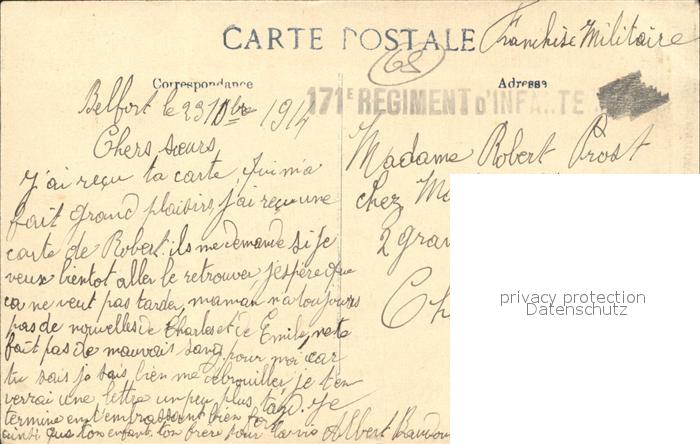 CARTE POSTALE
Franchise Militaire
68
Correspondance
Adresse
171E REGIMENT D'INFA..TE
Belfort le 23 Xbre 1914
Chers sœurs,
J'ai reçu ta carte, qui m'a
fait grand plaisirs, j'ai reçu une
carte de Robert. ils me demande si je
veux bientot aller le retrouver, j'espère que
ça ne veut pas tarder, maman n'a toujours
pas de nouvelles de Charles et de Emile, ne te
fait pas de mauvais sang pour moi car
tu sais je sais bien me débrouiller je t'en
verrai une lettre un peu plus tard. Je
termine en t'embrassent bien fort
ainsi que ton enfant. ton frère pour la vie Albert
Madame Robert Prost
chez
2 gran
Ch
privacy protection
Datenschutz